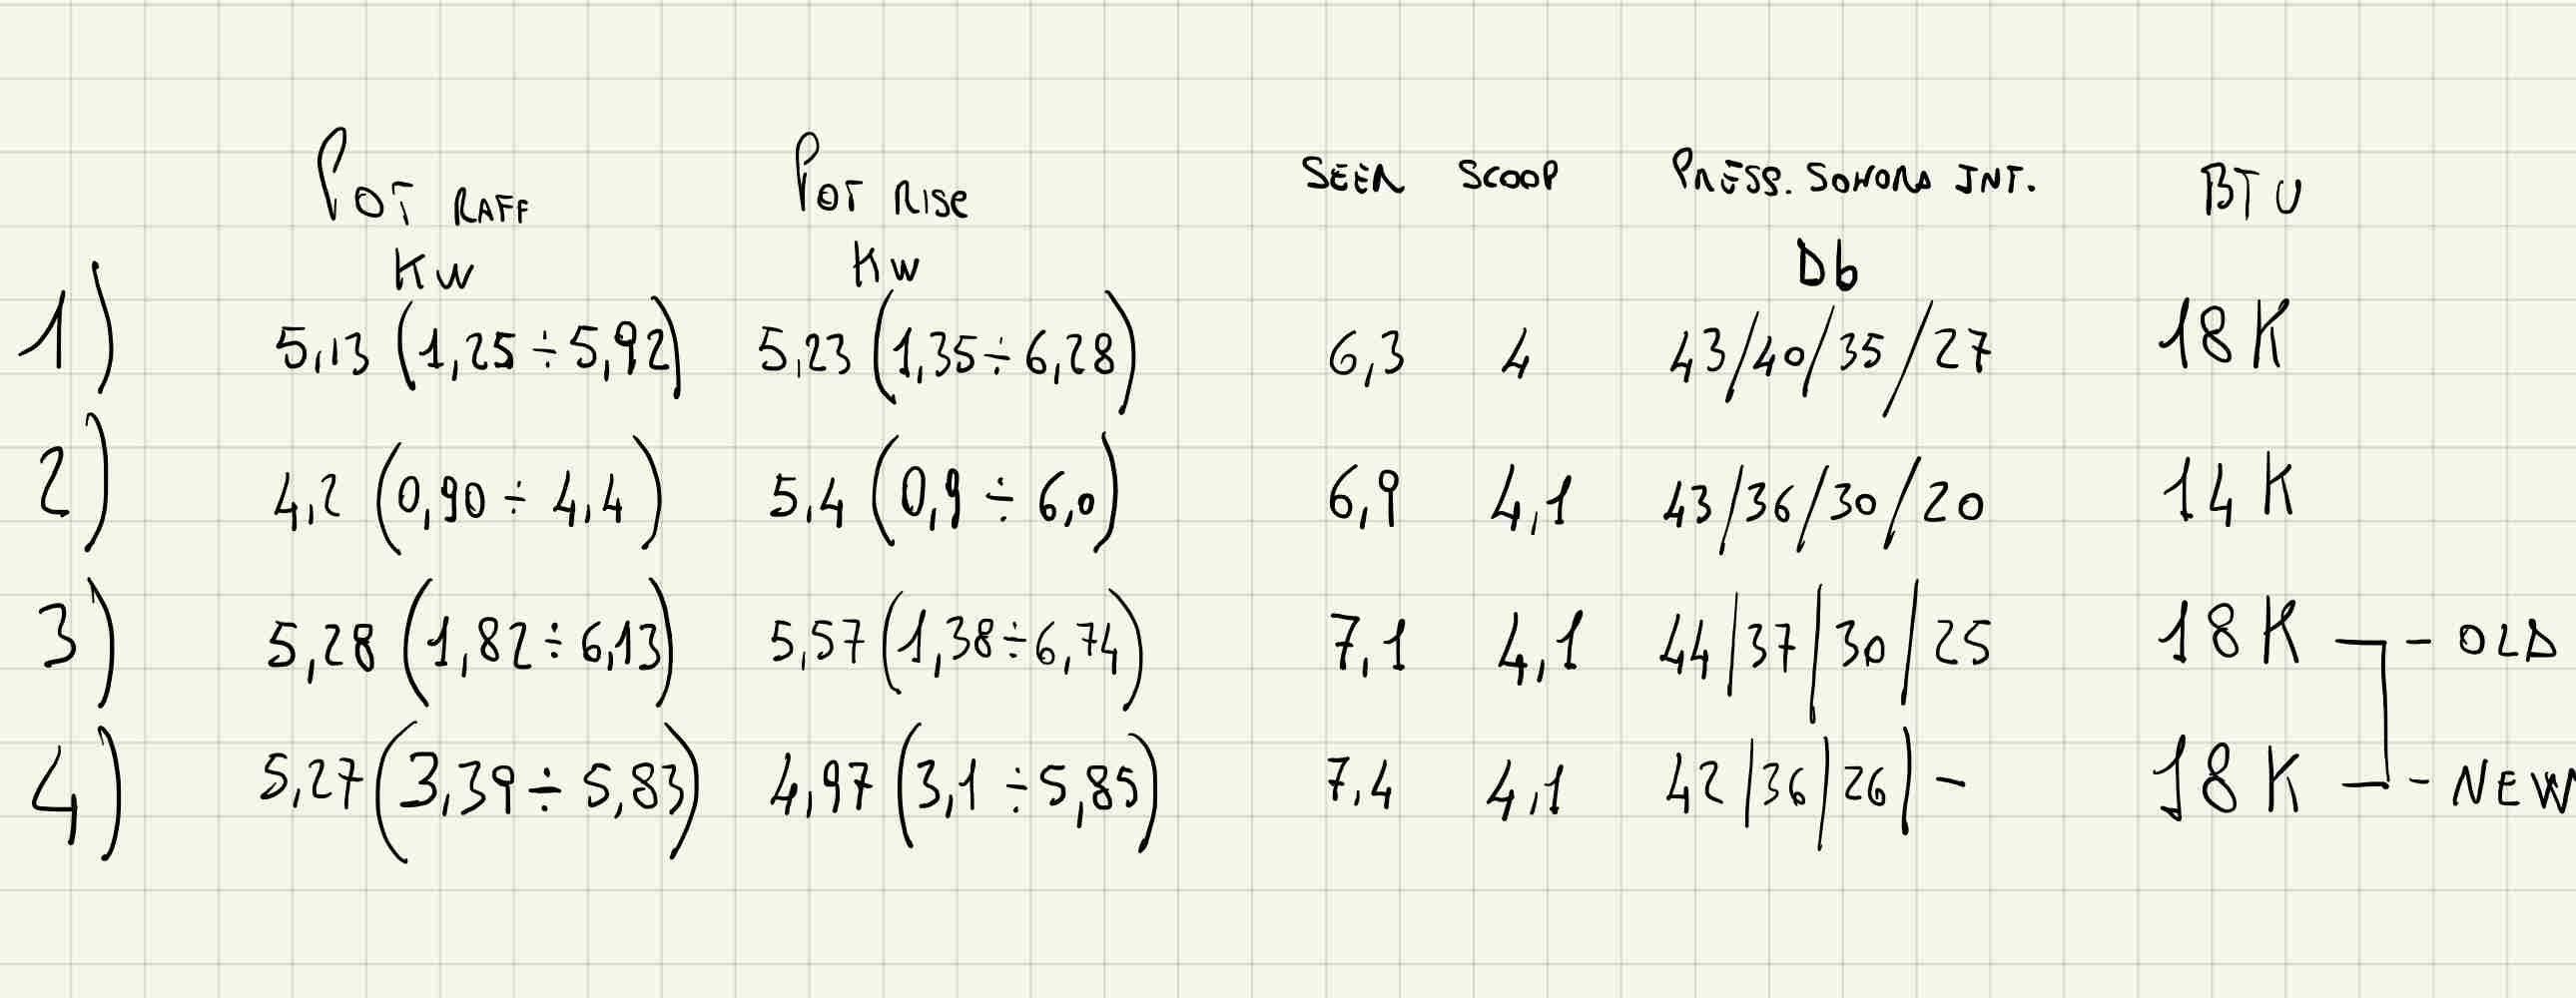 POT RAFF POT RISE SEER SCOOP PRESS. SONORA INT. BTU
KW KW Db
1) 5,13 (1,25 ÷ 5,92) 5,23 (1,35 ÷ 6,28) 6,3 4 43/40/35/27 18K
2) 4,2 (0,90 ÷ 4,4) 5,4 (0,9 ÷ 6,0) 6,9 4,1 43/36/30/20 14K
3) 5,28 (1,82 ÷ 6,13) 5,57 (1,38 ÷ 6,74) 7,1 4,1 44/37/30/25 18K - OLD
4) 5,27 (3,39 ÷ 5,83) 4,97 (3,1 ÷ 5,85) 7,4 4,1 42/36/26/- 18K - NEW